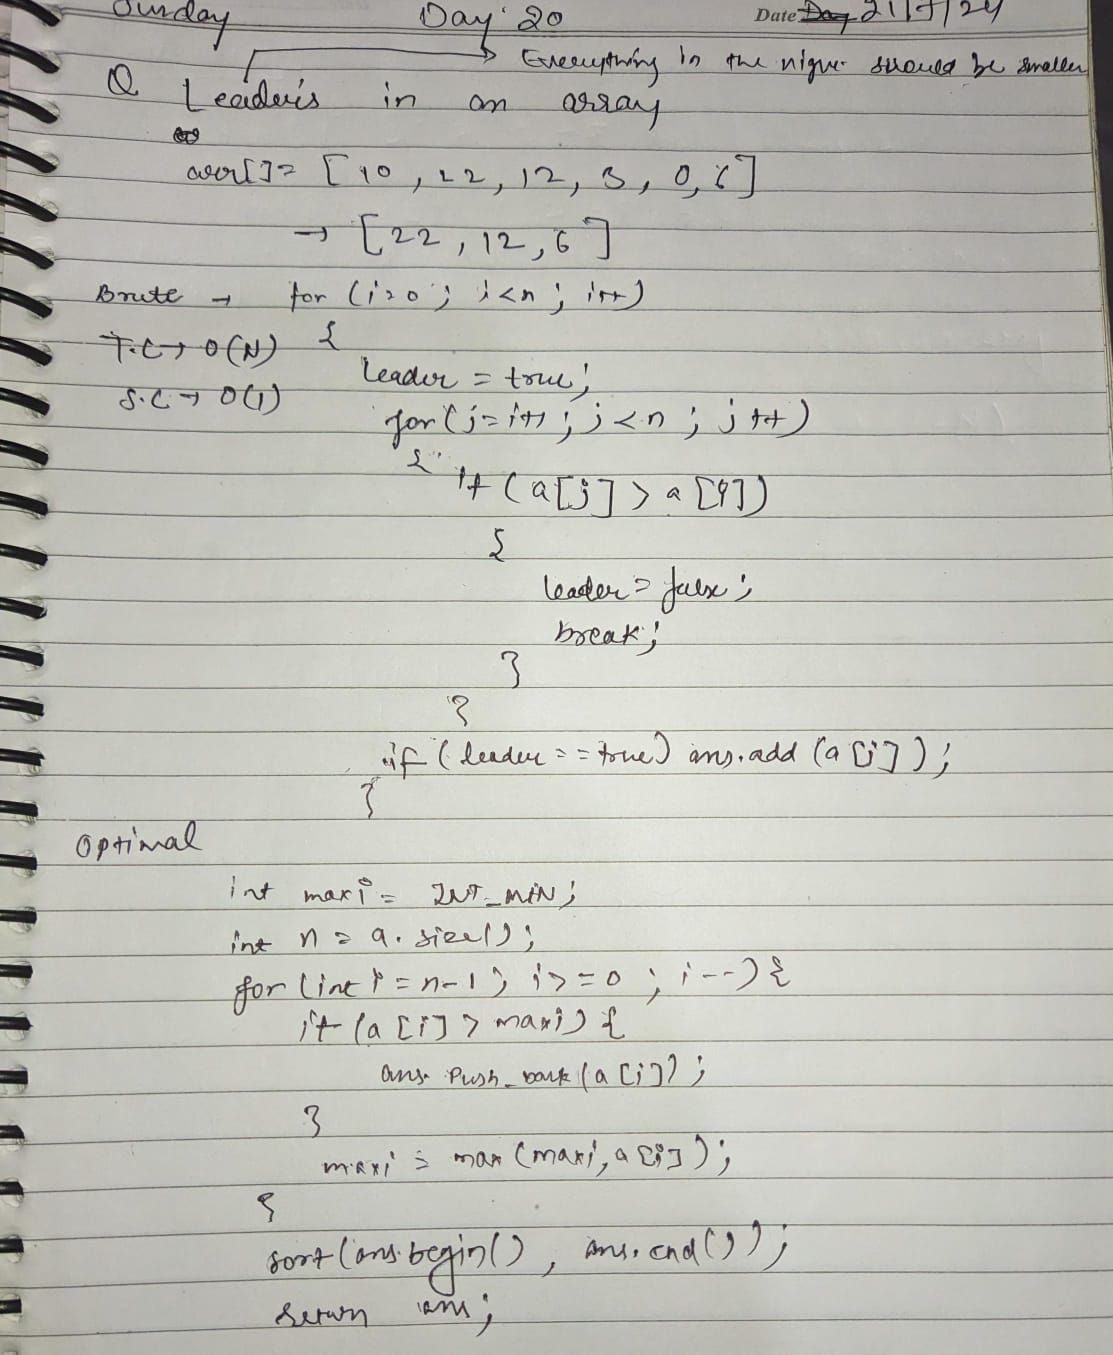 Sunday Day 20 Date Day 21/7/24
→ Everything in the right should be smaller
Q Leaders in an array
arr[] = [10, 22, 12, 3, 0, 6]
→ [22, 12, 6]
Brute → for (i=0; i<n; i++)
T.C → O(N) {
leader = true;
S.C → O(1)
for(j=i+1; j<n; j++)
{ if (a[j] > a[i])
{
leader = false;
break;
}
}
if (leader == true) ans.add (a[i]);
}
Optimal
int maxi = INT_MIN;
int n = a.size();
for (int i = n-1; i>=0; i--){
if (a[i] > maxi) {
ans.push_back(a[i]);
}
maxi = max (maxi, a[i]);
}
sort(ans.begin(), ans.end());
return ans;